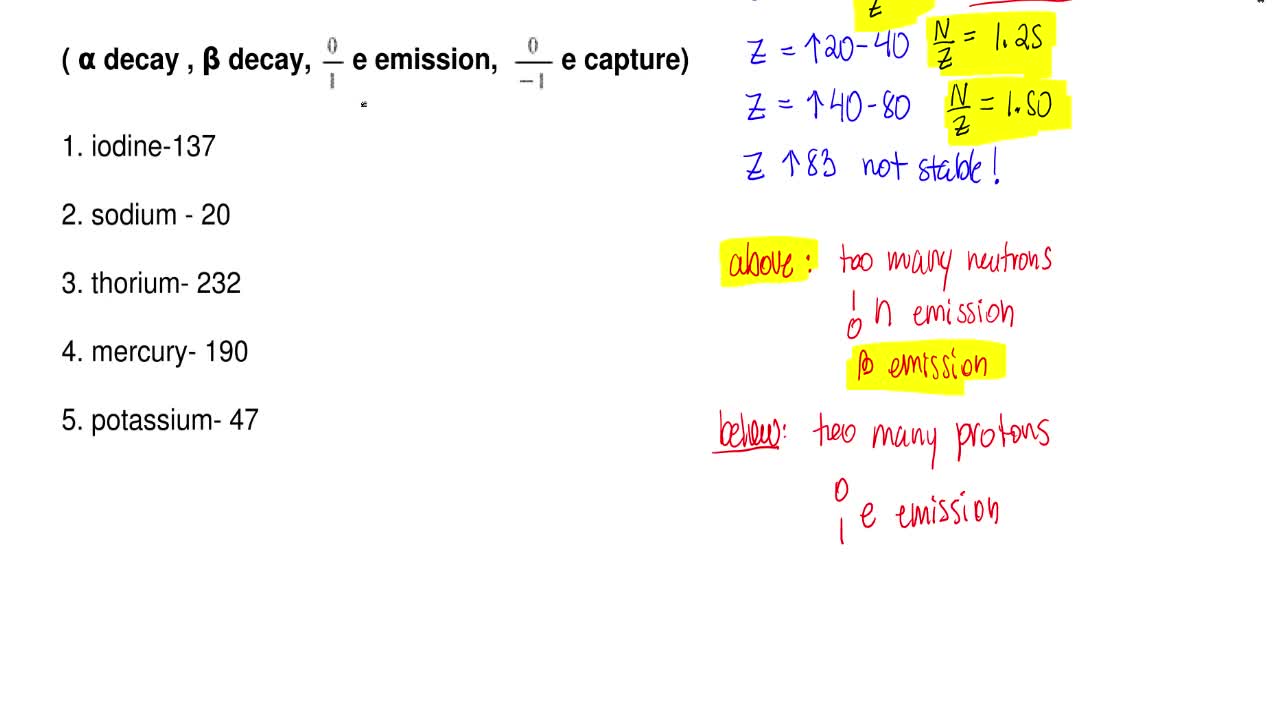 Z
( α decay , β decay, 0/1 e emission, 0/-1 e capture)
1. iodine-137
2. sodium - 20
3. thorium- 232
4. mercury- 190
5. potassium- 47
Z = ↑20-40 N/Z = 1.25
Z = ↑40-80 N/Z = 1.50
Z ↑83 not stable!
above: too many neutrons
1 0 n emission
β emission
below: too many protons
0 1 e emission